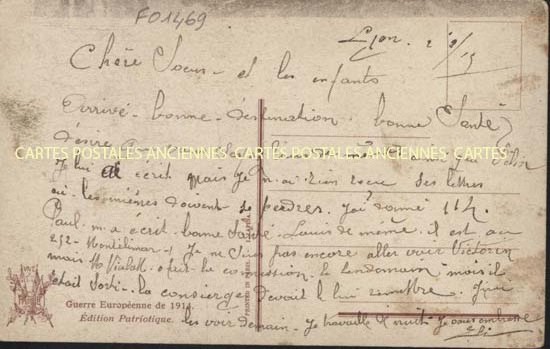 F01469
Lyon. 2/9/15
Chère Soeur - et les enfants
Arrivé bonne destination. bonne Santé
désire
CARTES POSTALES ANCIENNES CARTES POSTALES ANCIENNES CARTES
Je lui ai écrit mais je n.ai rien recu des lettres
où les miènes doivent se perdres.
Paul m.a écrit bonne Santé Louis de même. il est au
252 Montélimar Je ne suis pas encore aller voir Victorin
mais fait la commission le lendemain mais il
était Sorti - la concierge devait lui remettre.
Guerre Européenne de 1914
Édition Patriotique.
les voir demain - Je travaille de nuit Je vous embrasse
PRINTED IN